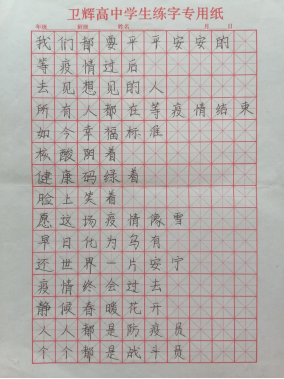 卫辉高中学生练字专用纸
年级 班级 姓名 月 日
我们都要平平安安的
等疫情过后
去见想见的人
所有人都在等疫情结束
如今幸福标准
核酸阴着
健康码绿着
脸上笑着
愿这场疫情像雪
早日化为乌有
还世界一片安宁
疫情终会过去
静候春暖花开
人人都是防疫员
个个都是战斗员